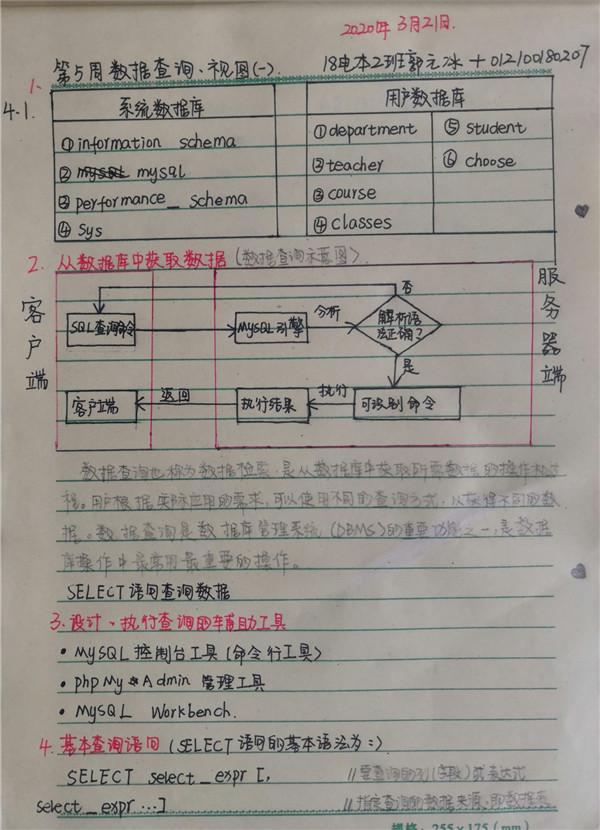 2020年 3月21日.
第5周 数据查询、视图(一). 18电本2班郭元冰+012100180207
1.
4.1. 系统数据库 用户数据库
①information schema ①department ⑤student
②mysql ②teacher ⑥choose
③performance_schema ③course
④sys ④classes
2. 从数据库中获取数据(数据查询示意图).
客户端 服务器端
否
SQL查询命令 MySQL引擎 分析 解析语法正确?
是
客户端 返回 执行结果 执行 可识别命令
数据查询也称为数据检索,是从数据库中获取所需数据的操作和过
程。用户根据实际应用的需求,可以使用不同的查询方式,从获得不同的数
据。数据查询是数据库管理系统(DBMS)的重要功能之一,是数据
库操作中最常用最重要的操作。
SELECT语句查询数据
3.设计、执行查询的辅助工具
• MySQL 控制台工具(命令行工具)
• phpMyAdmin 管理工具
• MySQL Workbench.
4. 基本查询语句(SELECT语句的基本语法为:)
SELECT select_expr [, //需查询的列(字段)或表达式
select_expr …] //指定查询的数据来源,即数据表
规格:255×175(mm)